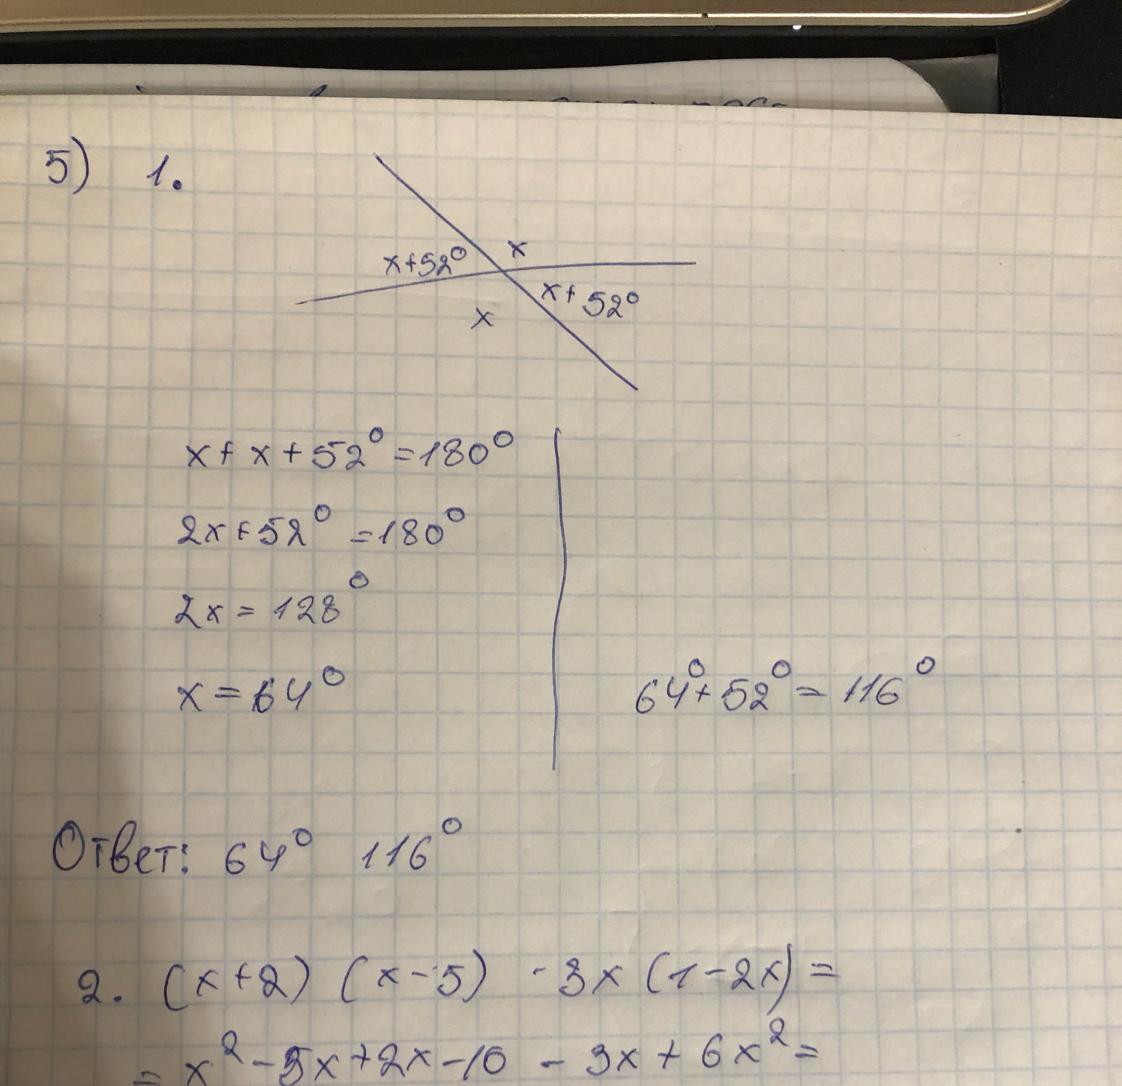 5) 1.
x+52° x
x x+52°
x+x+52°=180°
2x+52°=180°
2x=128°
x=64° 64°+52°=116°
Ответ: 64° 116°
2. (x+2)(x-5) -3x(1-2x)=
= x²-5x+2x-10-3x+6x²=